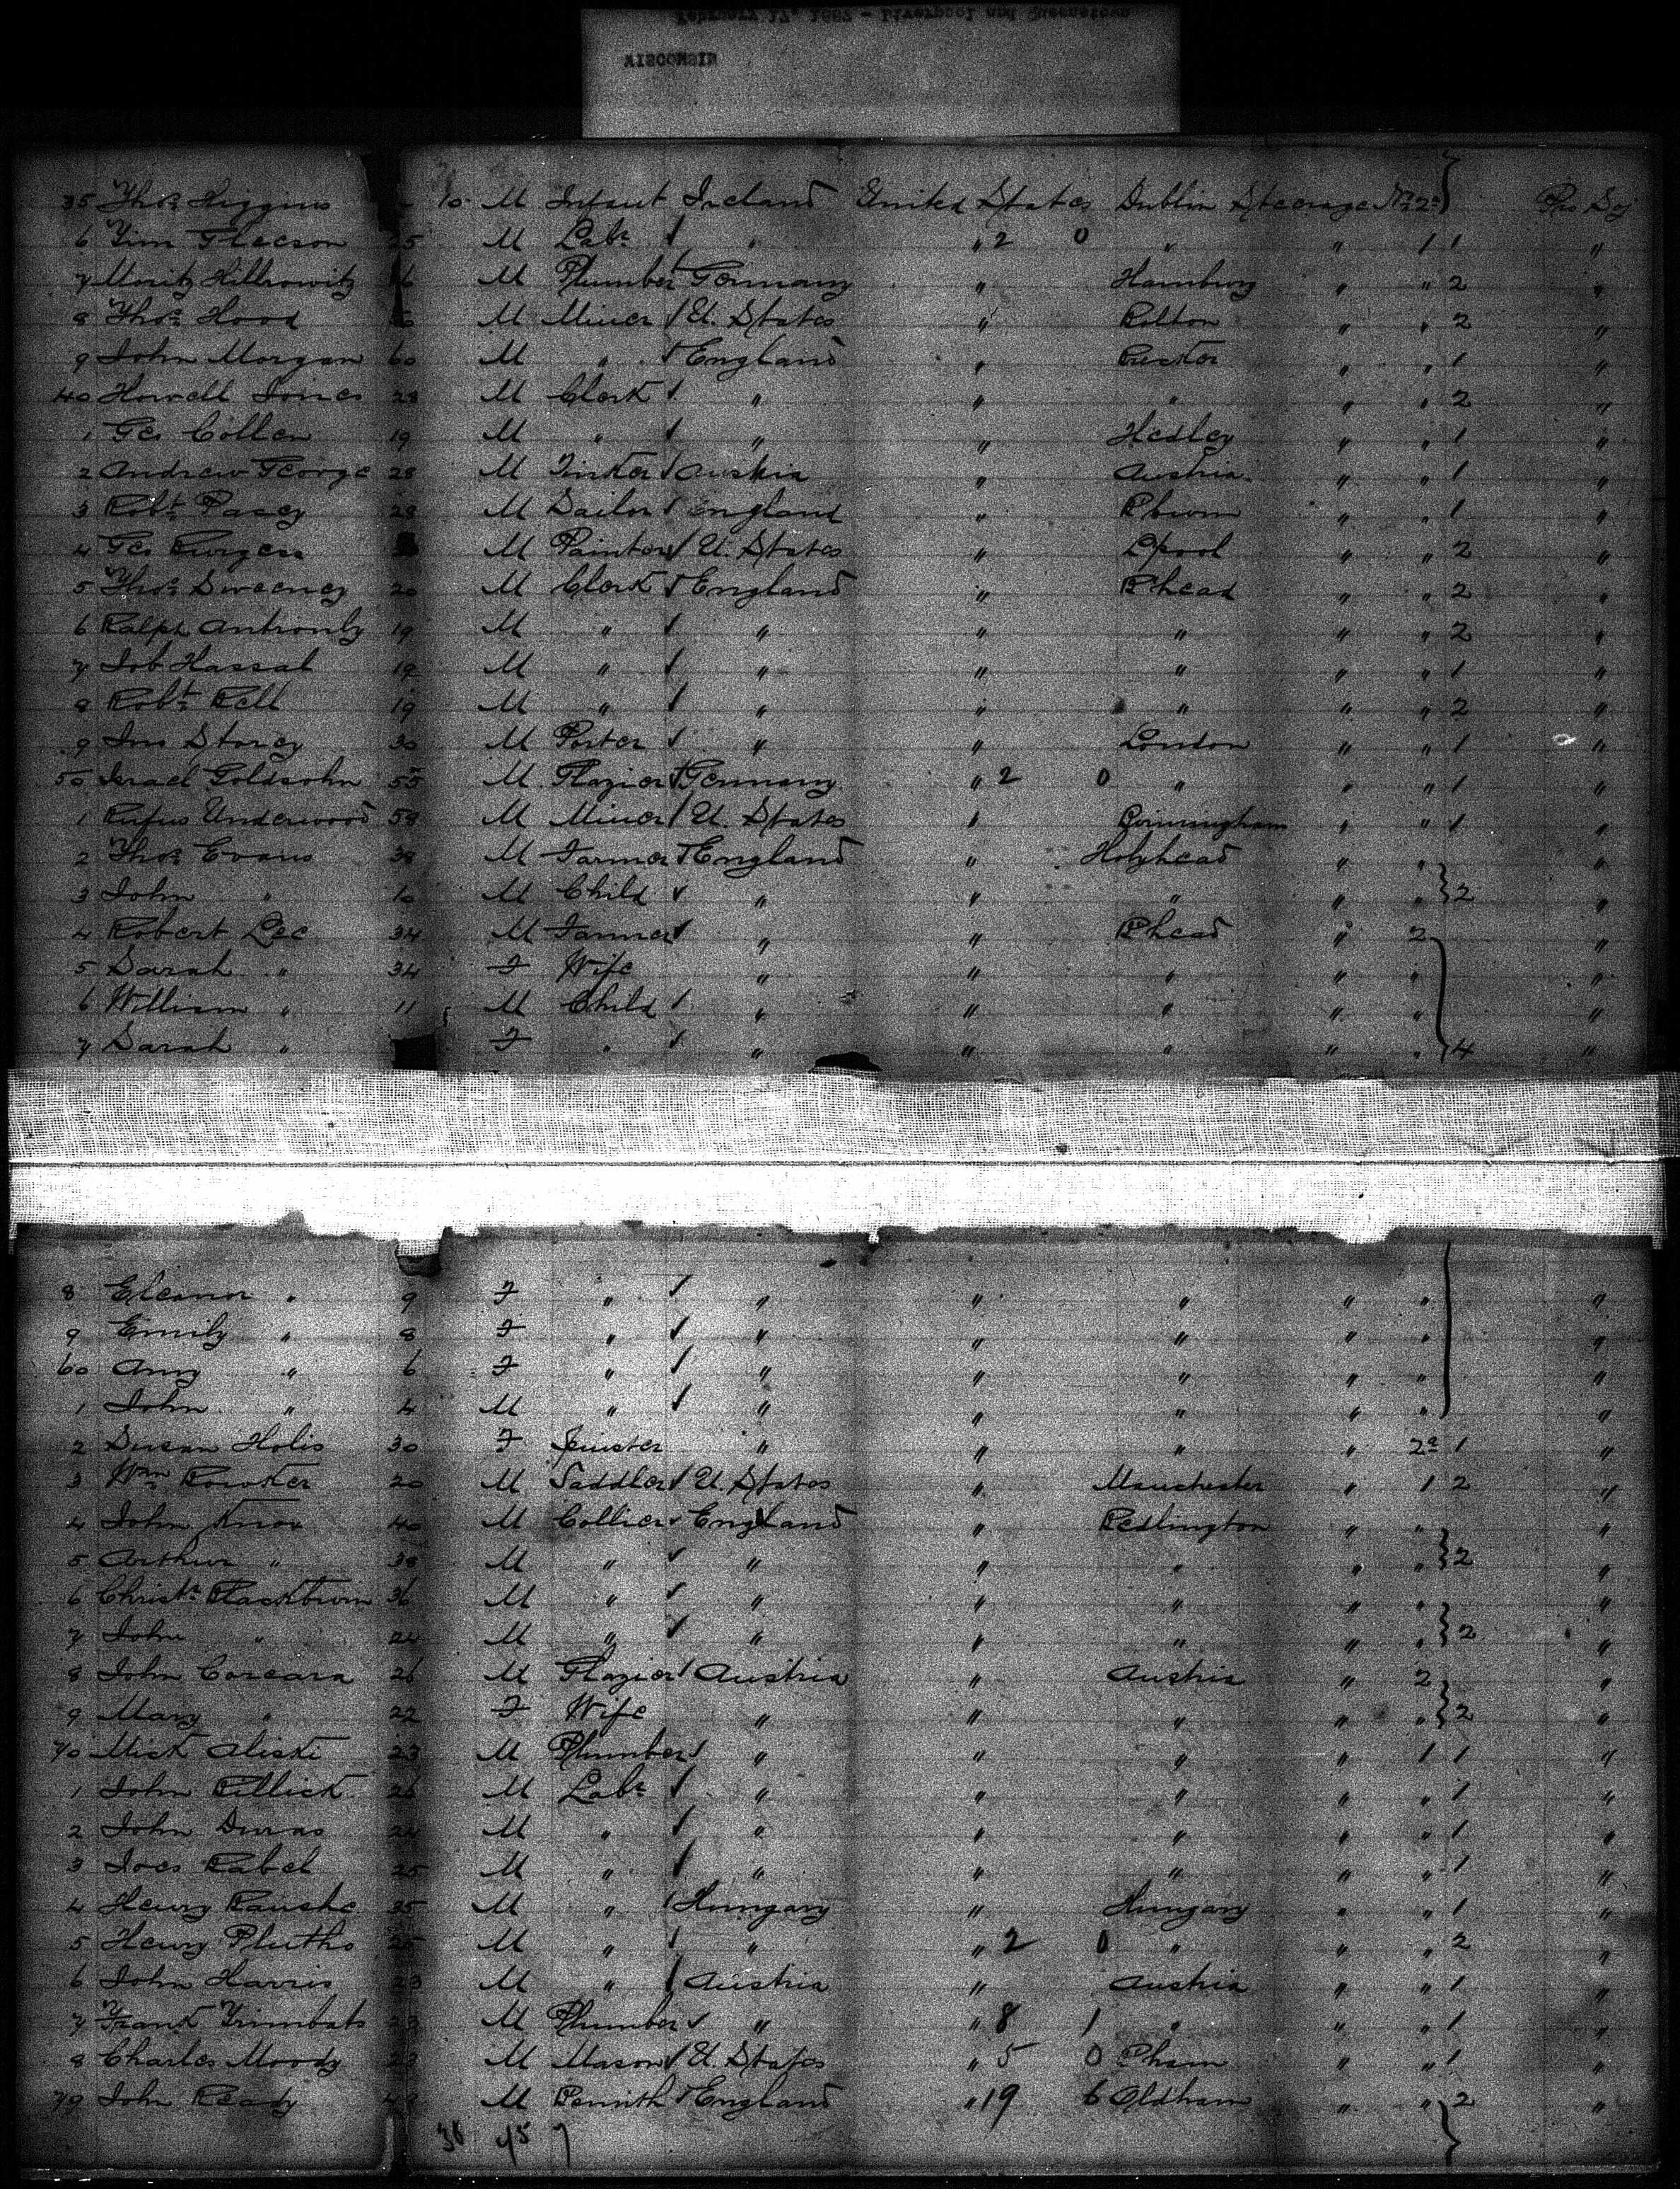 February 17, 1887 - Liverpool and Queenstown
WISCONSIN
35 Thos. Higgins 10 M Infant Ireland United States Dublin Steerage No. 2a Pro Soj
6 Tim Gleeson 25 M Labr " " 2 0 " " 1 1 "
7 Moritz 6 M Plumber Germany " Hamburg " " 2 "
8 Thos. Hood M Miner U. States " Bolton " " 2 "
9 John Morgan 60 M " England " " " 1 "
40 Howell Jones 28 M Clerk " " " " " 2 "
1 Geo Collen 19 M " " " Hedley " " 1 "
2 Andrew George 28 M Tinker Austria " Austria " " 1 "
3 Robt. Pacey 28 M Sailor England " " " 1 "
4 Geo Burgess M Painter U. States " Lpool " " 2 "
5 Thos. Sweeney 20 M Clerk England " B'head " " 2 "
6 Ralph 19 M " " " " " " 2 "
7 Job Hassal 19 M " " " " " " 1 "
8 Robt. Bell 19 M " " " " " " 2 "
9 Jno Storey 30 M Porter " " London " " 1 "
50 Israel Goldsohn 55 M Glazier Germany " 2 0 " " " 1 "
1 Rufus Underwood 58 M Miner U. States " Birmingham " " 1 "
2 Thos. Evans 38 M Farmer England " Holyhead " " "
3 John " 10 M Child " " " " " 2 "
4 Robert Lee 34 M Farmer " " B'head " 2 "
5 Sarah " 34 F Wife " " " " " "
6 William " 11 M Child " " " " " "
7 Sarah " F " " " " " " 4 "
8 Eleanor " 9 F " " " " " " "
9 Emily " 8 F " " " " " " "
60 Amy " 6 F " " " " " " "
1 John " 4 M " " " " " " "
2 Susan Holis 30 F Spinster " " " " 2a 1 "
3 Wm. Bowker 20 M Saddler U. States " Manchester " 1 2 "
4 John Knox 40 M Collier England " Bedlington " " "
5 Arthur " 38 M " " " " " " 2 "
6 Christr. 36 M " " " " " " "
7 John " 24 M " " " " " " 2 "
8 John Corcara 26 M Glazier Austria " Austria " 2 "
9 Mary " 22 F Wife " " " " " 2 "
70 Mick Aliski 23 M Plumber " " " " 1 1 "
1 John Pillick 26 M Labr " " " " " 1 "
2 John Duras 24 M " " " " " " 1 "
3 Joes Rabel 25 M " " " " " " 1 "
4 Henry 35 M " Hungary " Hungary " " 1 "
5 Henry Plutho 25 M " " " 2 0 " " " 2 "
6 John Harris 23 M " Austria " Austria " " 1 "
7 Frank 23 M Plumber " " 8 1 " " " 1 "
8 Charles Moody 23 M Mason U. States " 5 0 B'ham " " 1 "
79 John Ready M England " 19 6 Oldham " " 2 "